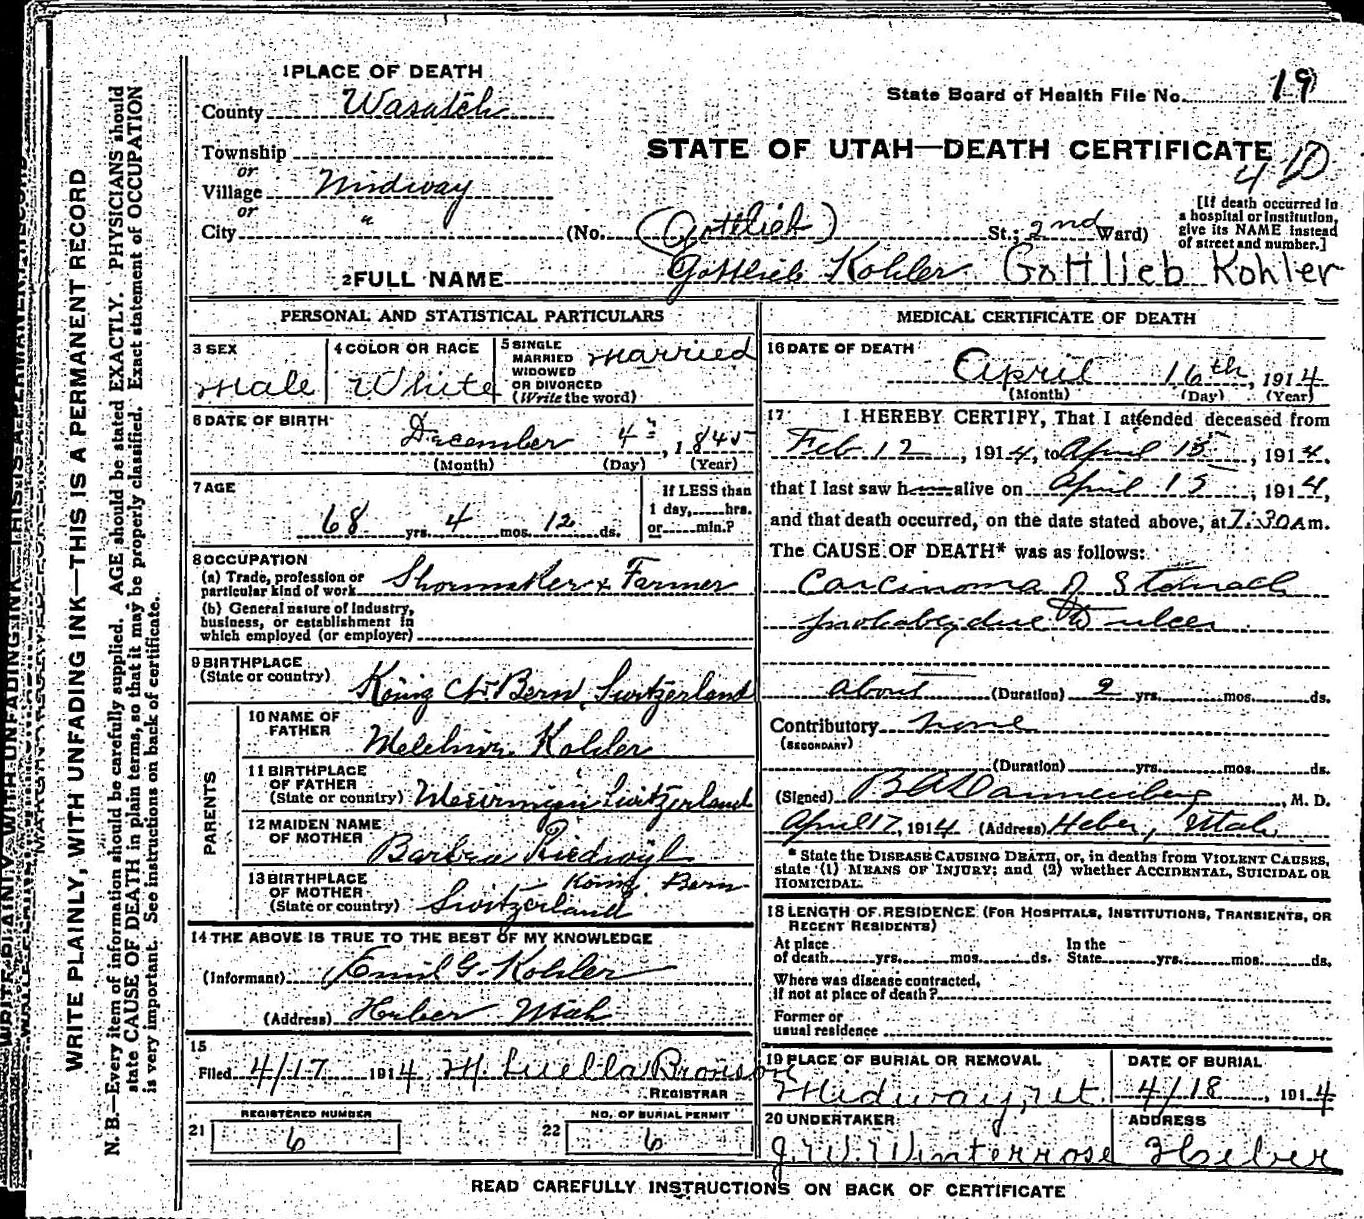 1 PLACE OF DEATH
County Wasatch
Township
or
Village Midway
or
City "
State Board of Health File No. 19
STATE OF UTAH—DEATH CERTIFICATE
410
(No. (Gottlieb) St.; 2nd Ward)
[If death occurred in
a hospital or institution,
give its NAME instead
of street and number.]
2 FULL NAME Gottlieb Kohler Gottlieb Kohler
PERSONAL AND STATISTICAL PARTICULARS
3 SEX
Male
4 COLOR OR RACE
White
5 SINGLE
MARRIED
WIDOWED
OR DIVORCED
(Write the word)
Married
6 DATE OF BIRTH
December 4, 1845
(Month) (Day) (Year)
7 AGE
68 yrs. 4 mos. 12 ds.
If LESS than
1 day, hrs.
or min.?
8 OCCUPATION
(a) Trade, profession or
particular kind of work Shoemaker & Farmer
(b) General nature of Industry,
business, or establishment in
which employed (or employer)
9 BIRTHPLACE
(State or country) König Ct. Bern, Switzerland
PARENTS
10 NAME OF
FATHER Melchior Kohler
11 BIRTHPLACE
OF FATHER
(State or country) Switzerland
12 MAIDEN NAME
OF MOTHER Barbra Riedwyl
13 BIRTHPLACE
OF MOTHER König, Bern
(State or country) Switzerland
14 THE ABOVE IS TRUE TO THE BEST OF MY KNOWLEDGE
(Informant) Emil G. Kohler
(Address) Heber Utah
15
Filed 4/17 1914 M. Luella Bronson
REGISTRAR
REGISTERED NUMBER
21 6
NO. OF BURIAL PERMIT
22 6
MEDICAL CERTIFICATE OF DEATH
16 DATE OF DEATH
April 16th, 1914
(Month) (Day) (Year)
17 I HEREBY CERTIFY, That I attended deceased from
Feb. 12, 1914, to April 15, 1914,
that I last saw h alive on April 15, 1914,
and that death occurred, on the date stated above, at 7:30 A m.
The CAUSE OF DEATH* was as follows:
Carcinoma of Stomach
probably due to ulcer
about (Duration) 2 yrs. mos. ds.
Contributory none
(SECONDARY)
(Duration) yrs. mos. ds.
(Signed) B A Dannenberg, M. D.
April 17, 1914 (Address) Heber, Utah
* State the DISEASE CAUSING DEATH, or, in deaths from VIOLENT CAUSES,
state (1) MEANS OF INJURY; and (2) whether ACCIDENTAL, SUICIDAL OR
HOMICIDAL.
18 LENGTH OF RESIDENCE (FOR HOSPITALS, INSTITUTIONS, TRANSIENTS, OR
RECENT RESIDENTS)
At place
of death yrs. mos. ds.
In the
State yrs. mos. ds.
Where was disease contracted,
if not at place of death?
Former or
usual residence
19 PLACE OF BURIAL OR REMOVAL
Midway, Ut.
DATE OF BURIAL
4/18, 1914
20 UNDERTAKER
J. W. Winterrose
ADDRESS
Heber
READ CAREFULLY INSTRUCTIONS ON BACK OF CERTIFICATE
WRITE PLAINLY, WITH UNFADING INK—THIS IS A PERMANENT RECORD
N. B.—Every item of information should be carefully supplied. AGE should be stated EXACTLY. PHYSICIANS should
state CAUSE OF DEATH in plain terms, so that it may be properly classified. Exact statement of OCCUPATION
is very important. See instructions on back of certificate.